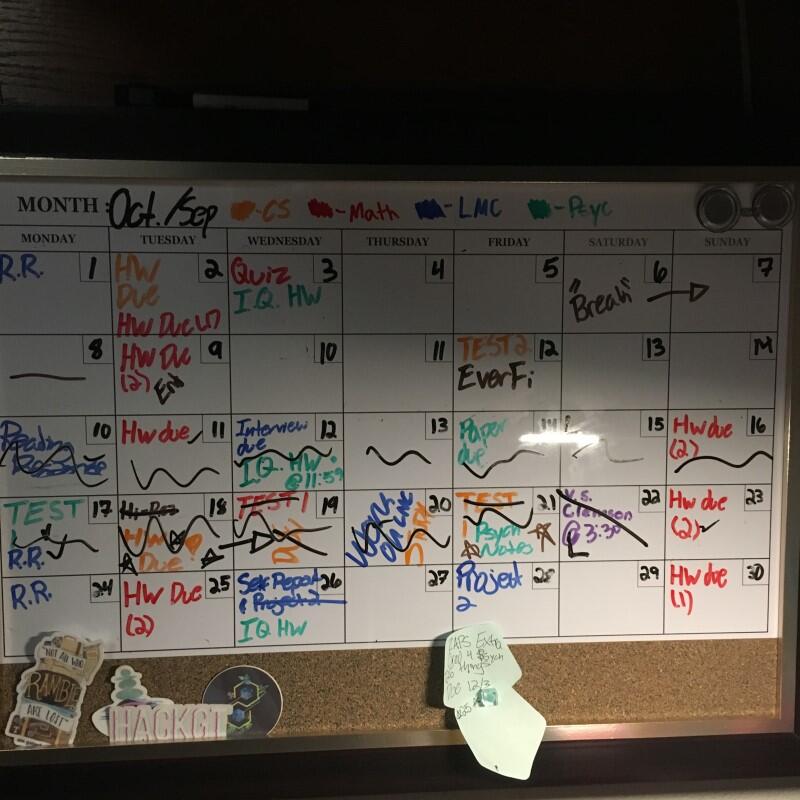 MONTH: Oct./Sep -CS -Math -LMC -Psyc
MONDAY TUESDAY WEDNESDAY THURSDAY FRIDAY SATURDAY SUNDAY
R.R. 1
HW 2
Due
HW Due (1)
Quiz 3
I.Q. HW
4
5
6
"Break"
7
8
HW Due 9
(2) End
10
11
TEST 2 12
EverFi
13
14
Reading 10
Response
HW due 11
Interview 12
due
I.Q. HW
@ 11:59
13
Paper 14
due
15
HW due 16
(2)
TEST 17
1
R.R.
18
HW
Due
TEST 1 19
20
TEST 21
1 Psych
Notes
V.S. 22
Clemson
@ 3:30
L
HW due 23
(2)
R.R. 24
HW Due 25
(2)
Self Report 26
& Project 2
IQ HW
27
Project 28
2
29
HW due 30
(1)
"NOT ALL WHO
RAMBLE
ARE LOST"
HACKGT
Extra
4 Psych
things
12/3